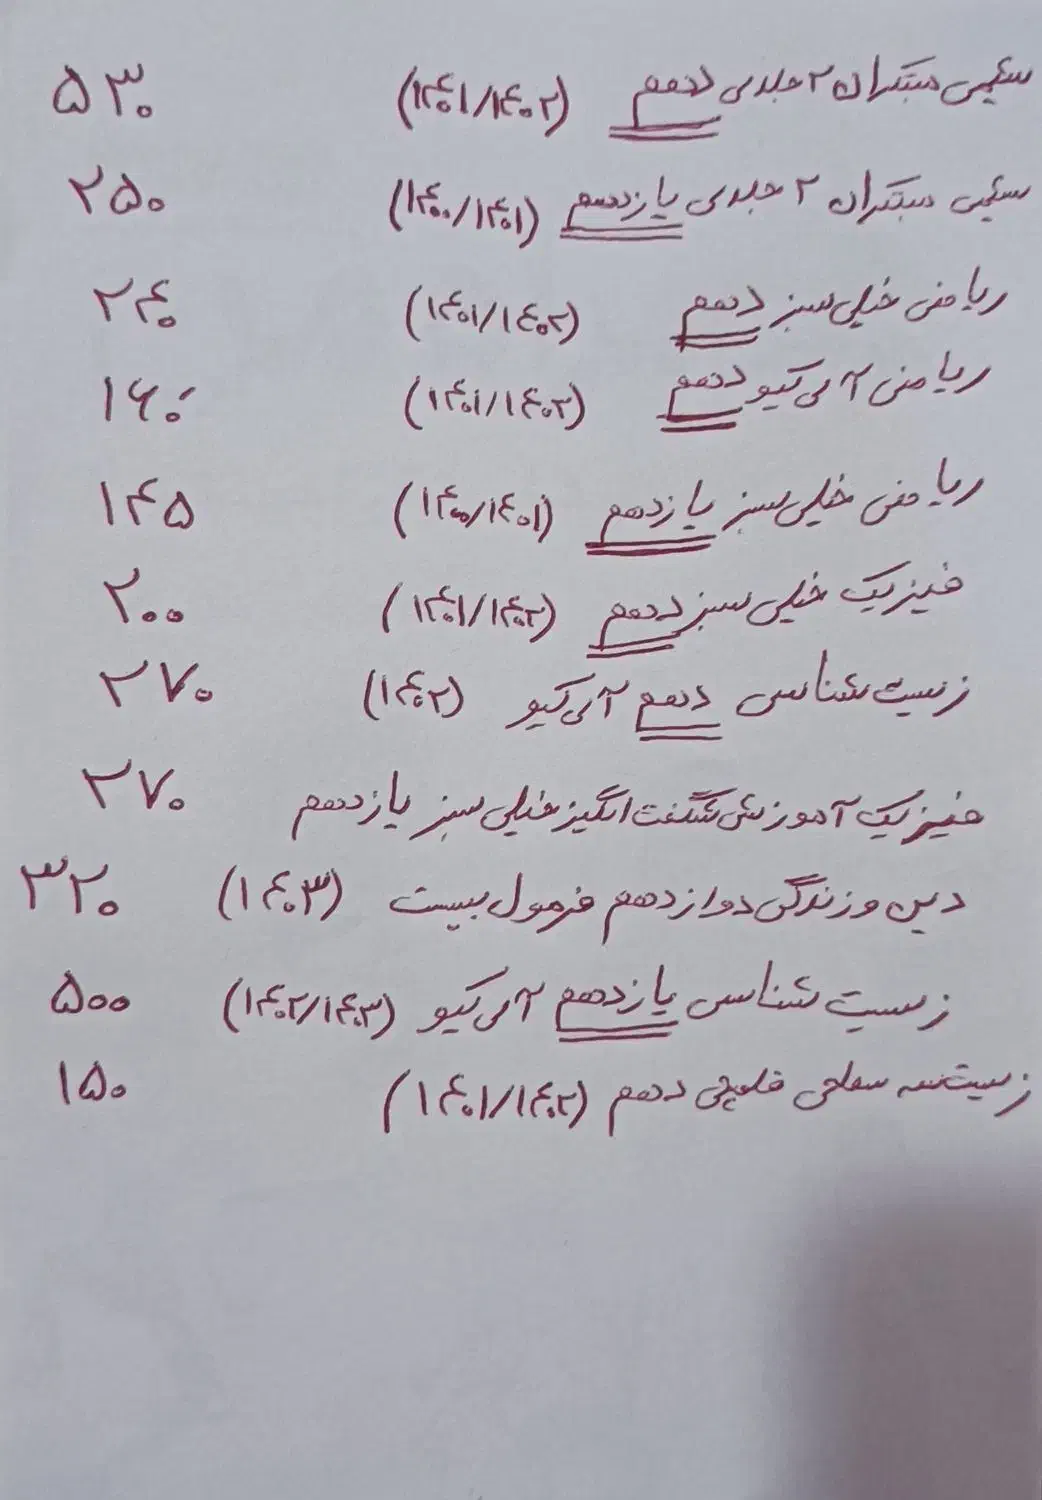 شیمی مبتکران ۲ جلدی دهم (۱۴۰۱/۱۴۰۲) ۵۳۰
شیمی مبتکران ۲ جلدی یازدهم (۱۴۰۰/۱۴۰۱) ۲۵۰
ریاضی خیلی سبز دهم (۱۴۰۱/۱۴۰۲) ۲۴۰
ریاضی آی کیو دهم (۱۴۰۱/۱۴۰۲) ۱۶۰
ریاضی خیلی سبز یازدهم (۱۴۰۰/۱۴۰۱) ۱۴۵
فیزیک خیلی سبز دهم (۱۴۰۱/۱۴۰۲) ۲۰۰
زیست شناسی دهم آی کیو (۱۴۰۲) ۲۷۰
فیزیک آموزش شگفت انگیز خیلی سبز یازدهم ۲۷۰
دین و زندگی دوازدهم فرمول بیست (۱۴۰۳) ۳۲۰
زیست شناسی یازدهم آی کیو (۱۴۰۲/۱۴۰۳) ۵۰۰
زیست سه سطحی قلمچی دهم (۱۴۰۱/۱۴۰۲) ۱۵۰